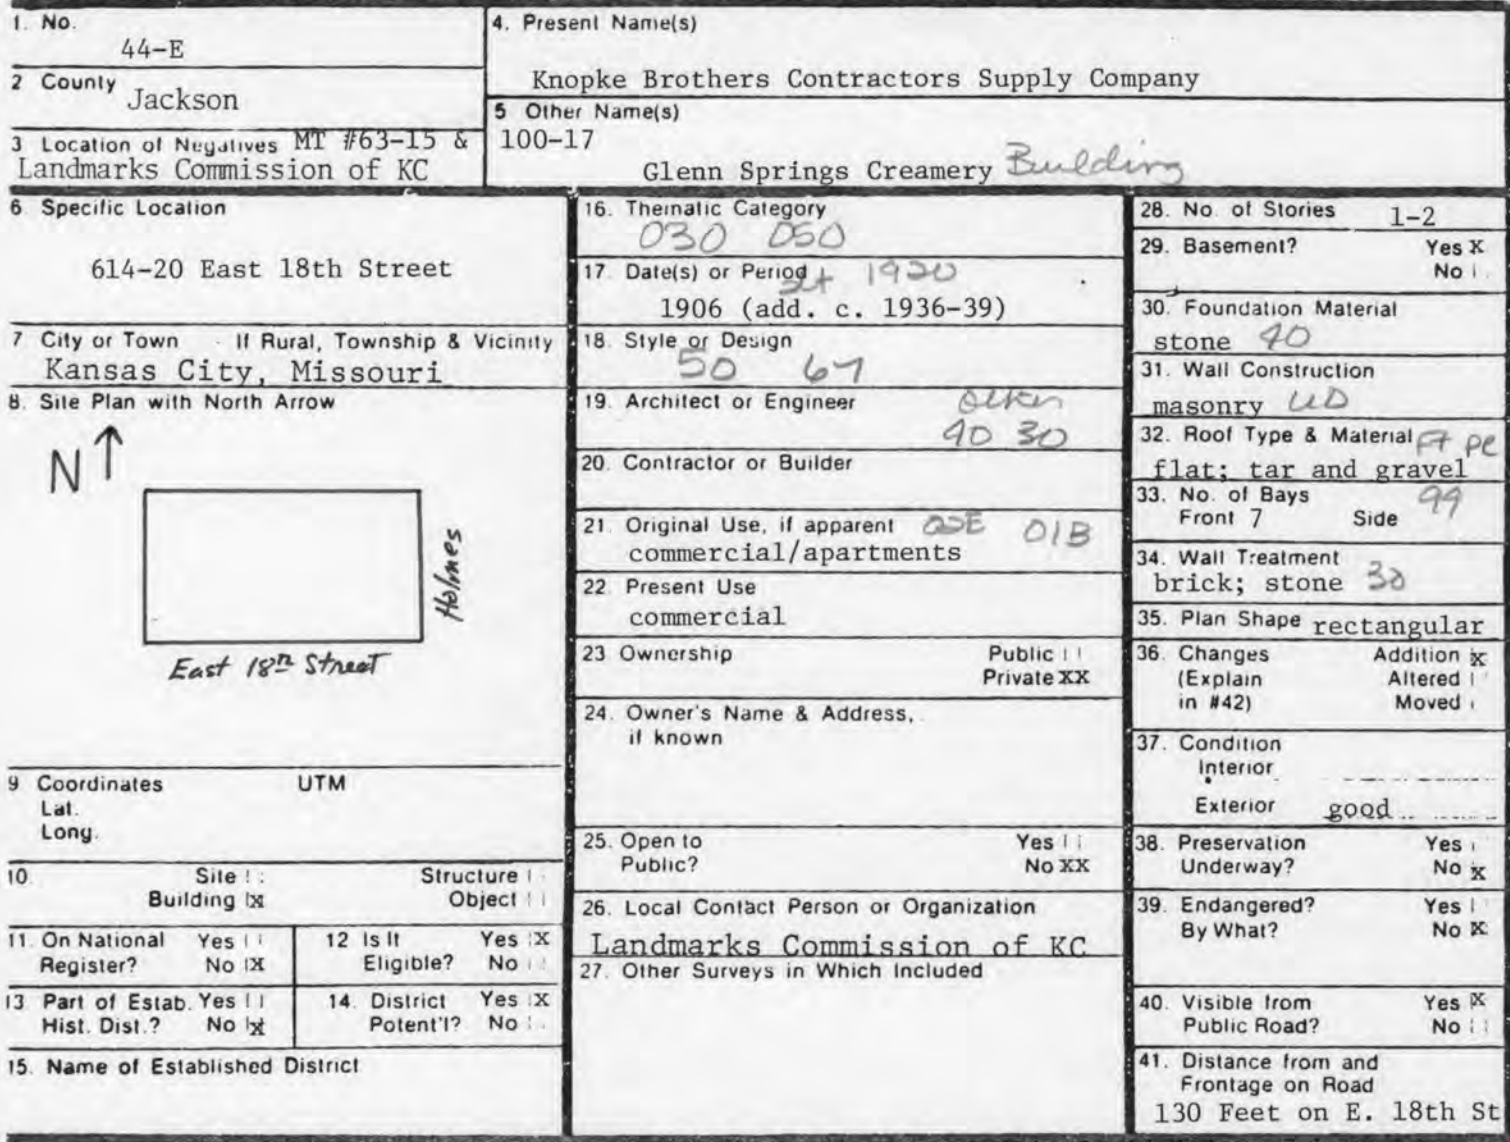 1. No.
44-E
2 County Jackson
3 Location of Negatives MT #63-15 &
Landmarks Commission of KC
4. Present Name(s)
Knopke Brothers Contractors Supply Company
5 Other Name(s)
100-17
Glenn Springs Creamery Building
6 Specific Location
614-20 East 18th Street
7 City or Town If Rural, Township & Vicinity
Kansas City, Missouri
8. Site Plan with North Arrow
N
Holmes
East 18th Street
9 Coordinates UTM
Lat.
Long.
10. Site Structure
Building X Object
11. On National Register? Yes
No X
12 Is It Eligible? Yes X
No
13 Part of Estab. Hist. Dist.? Yes
No X
14. District Potent'l? Yes X
No
15. Name of Established District
16. Thematic Category
030 050
17. Date(s) or Period 1920
1906 (add. c. 1936-39)
18. Style or Design
50 67
19. Architect or Engineer other
40 30
20. Contractor or Builder
21. Original Use, if apparent 01B
commercial/apartments
22. Present Use
commercial
23 Ownership Public
Private XX
24. Owner's Name & Address,
if known
25. Open to Public? Yes
No XX
26. Local Contact Person or Organization
Landmarks Commission of KC
27. Other Surveys in Which Included
28. No. of Stories 1-2
29. Basement? Yes X
No
30. Foundation Material
stone 40
31. Wall Construction
masonry UD
32. Roof Type & Material FT PC
flat; tar and gravel
33. No. of Bays 99
Front 7 Side
34. Wall Treatment
brick; stone 30
35. Plan Shape rectangular
36. Changes Addition X
(Explain Altered
in #42) Moved
37. Condition
Interior
Exterior good
38. Preservation Yes
Underway? No X
39. Endangered? Yes
By What? No X
40. Visible from Yes X
Public Road? No
41. Distance from and
Frontage on Road
130 Feet on E. 18th St